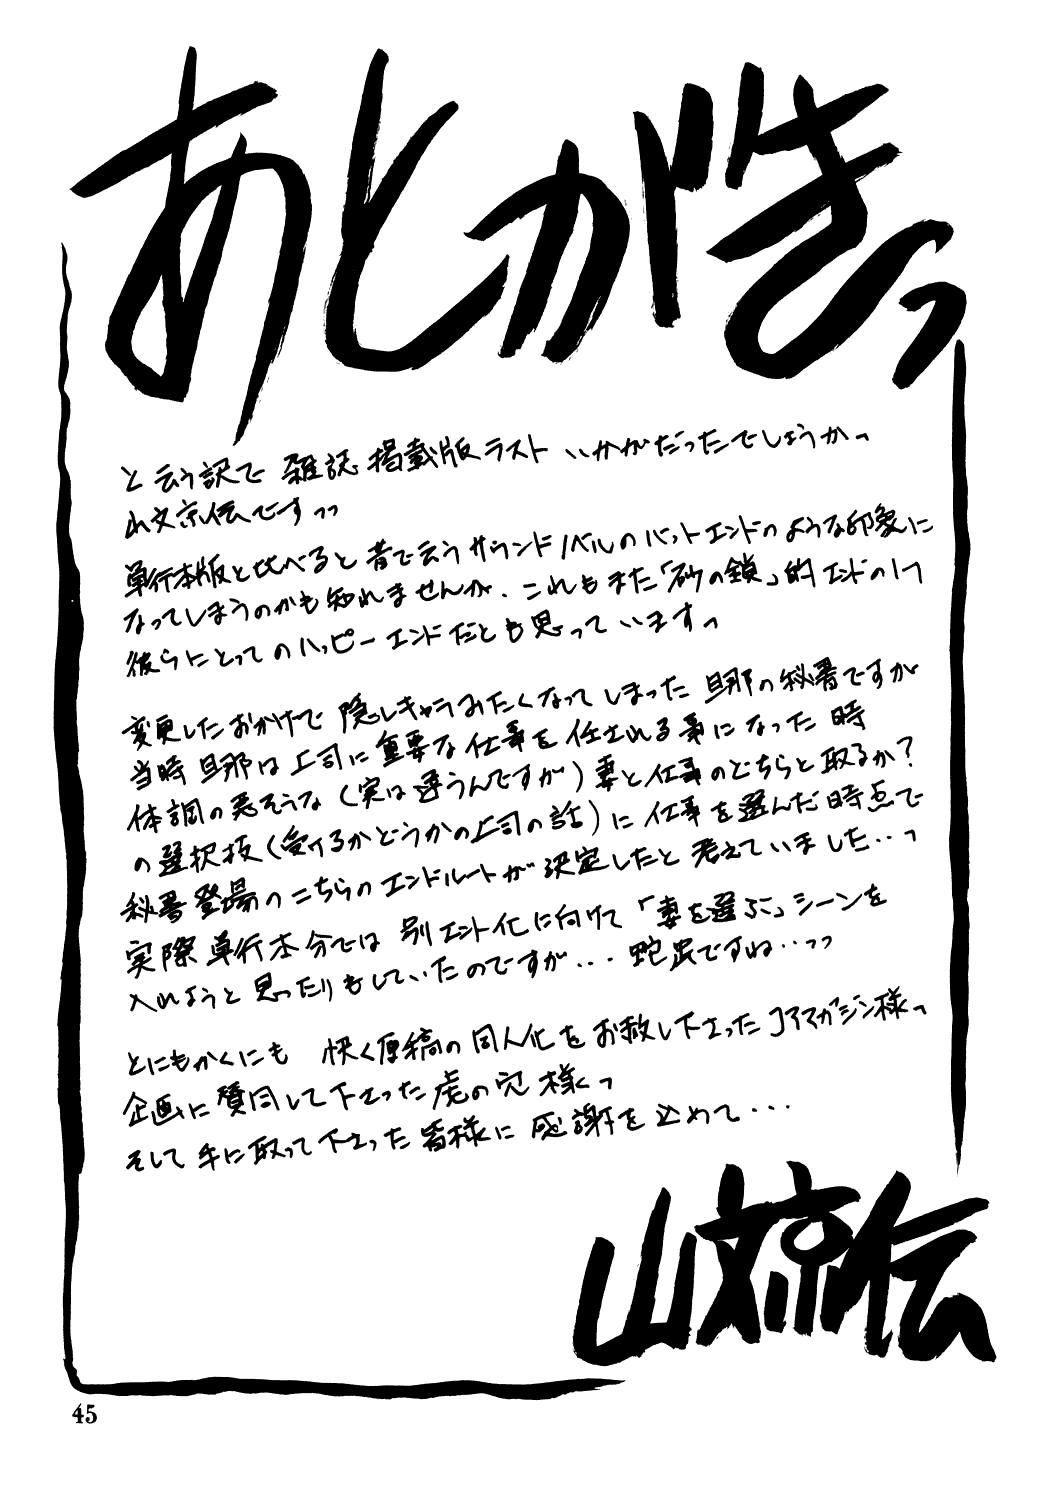 あとがきっ
と云う訳で 雑誌掲載版ラスト いかがだったでしょうかっ
山文京伝ですっっ
単行本版と比べると昔で云うサウンドノベルのバットエンドのような印象に
なってしまうのかも知れませんが、これもまた「砂の鎖」的エンドの1つ
彼らにとってのハッピーエンドだとも思っていますっ
変更したおかげで 隠しキャラみたくなってしまった 旦那の秘書ですが
当時 旦那は上司に重要な仕事を任される事になった時
体調の悪そうな(実は違うんですが)妻と仕事のどちらと取るか?
の選択枝(受けるかどうかの上司の話)に 仕事を選んだ時点で
秘書登場のこちらのエンドルートが決定したと考えていました‥っ
実際単行本分では 別エンド化に向けて「妻を選ぶ」シーンを
入れようと思ったりもしていたのですが... 蛇足ですね‥っっ
とにもかくにも 快く原稿の同人化をお赦し下さったコアマガジン様っ
企画に賛同して下さった虎の穴様っ
そして手に取って下さった皆様に 感謝を込めて...
山文京伝
45